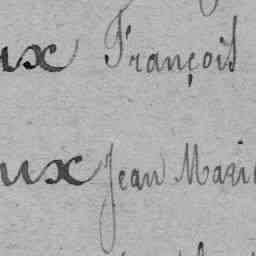 ux François
ux Jean Marie